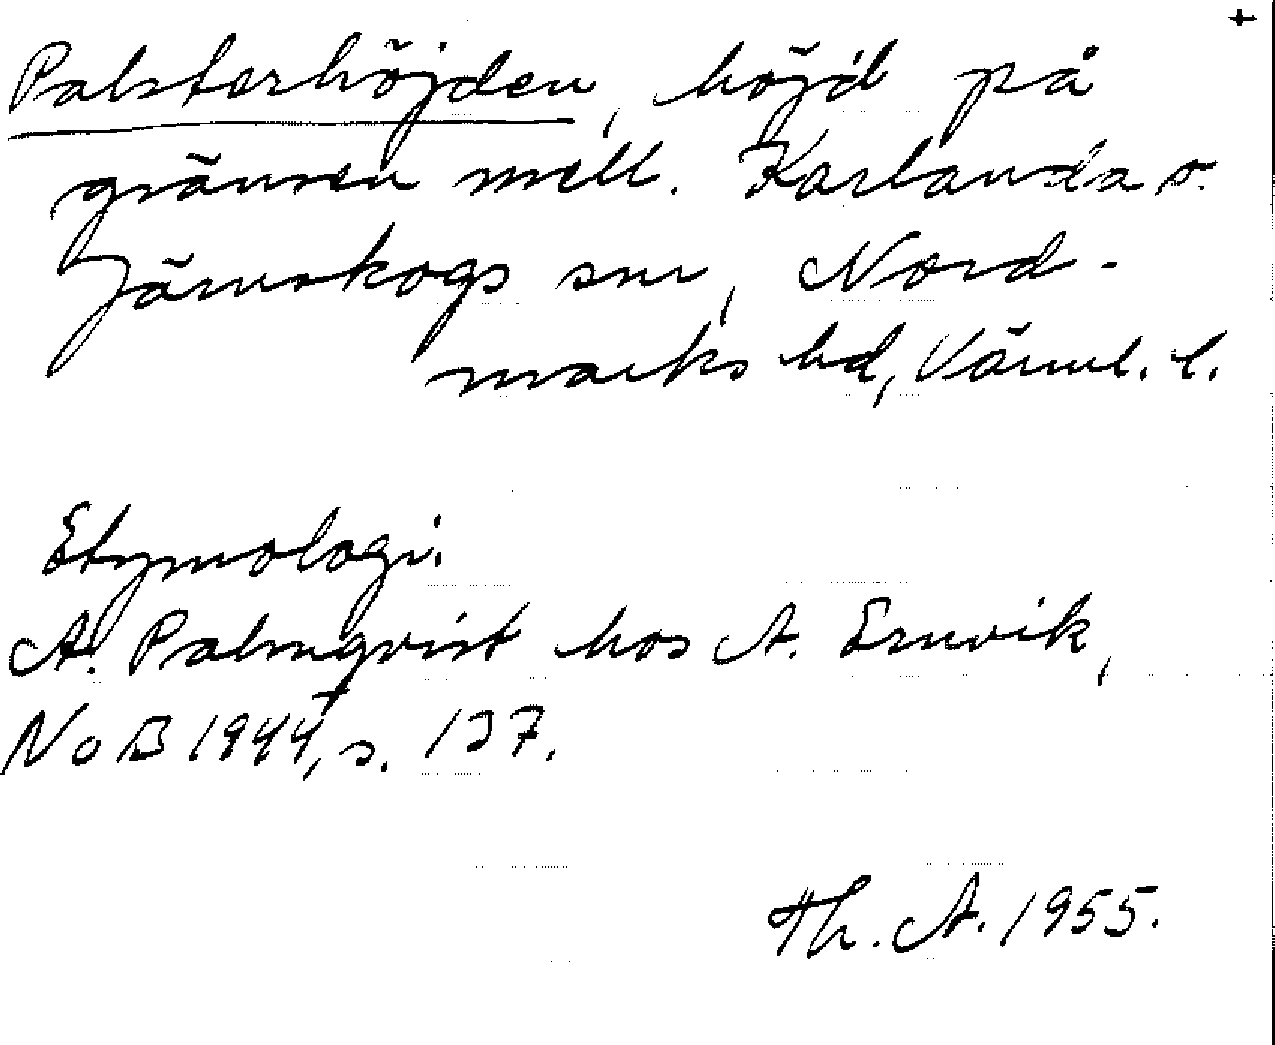 +
Palsterhöjden, höjd på
gränsen mell. Karlanda o.
Järnskogs snr, Nord-
marks hd, Värml. l.
Etymologi.
A. Palmqvist hos A. Ernvik,
NoB 1944, s. 137.
Th. A. 1955.